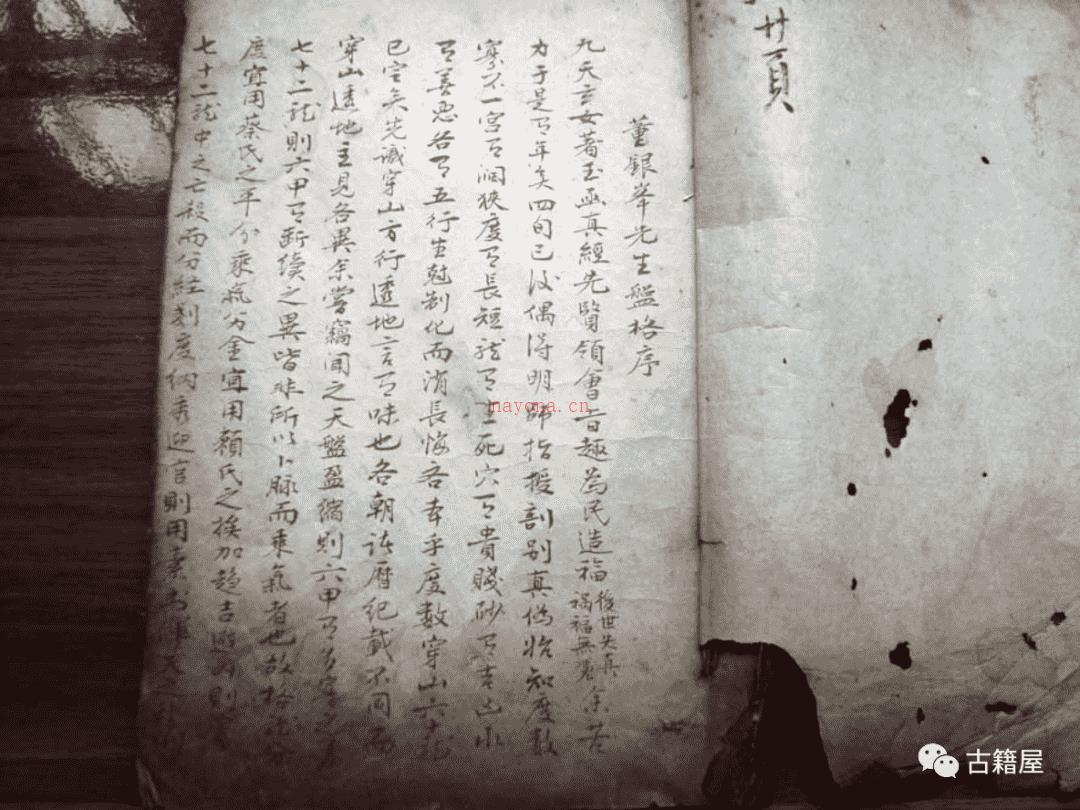 廿頁
董銀峯先生盤格序
九天玄女著玉函真經先賢領會旨趣為民造福後世失真禍福無憑余苦
力于是㇆年矣四旬已後偶得明師指授剖別真偽始知度数
寡不一宫㇆濶狹度㇆長短龍㇆生死穴㇆貴賤砂㇆吉凶水
㇆善恶各㇆五行生尅制化而消長悔吝本乎度数穿山六十龍
已定矣先識穿山方行透地言㇆味也各朝諸曆纪載不同而
穿山透地主見各異余嘗竊聞之天盤盈縮則六甲㇆
七十二龍則六甲㇆断續之異皆非所以卜脉而乘氣者也故格龍
度宜用蔡氏之平分乘氣分金宜用賴氏之挨加趋吉避凶則
七十二龍中之亡殺而分經刻度納秀迎官則用
nayona.cn
古籍屋